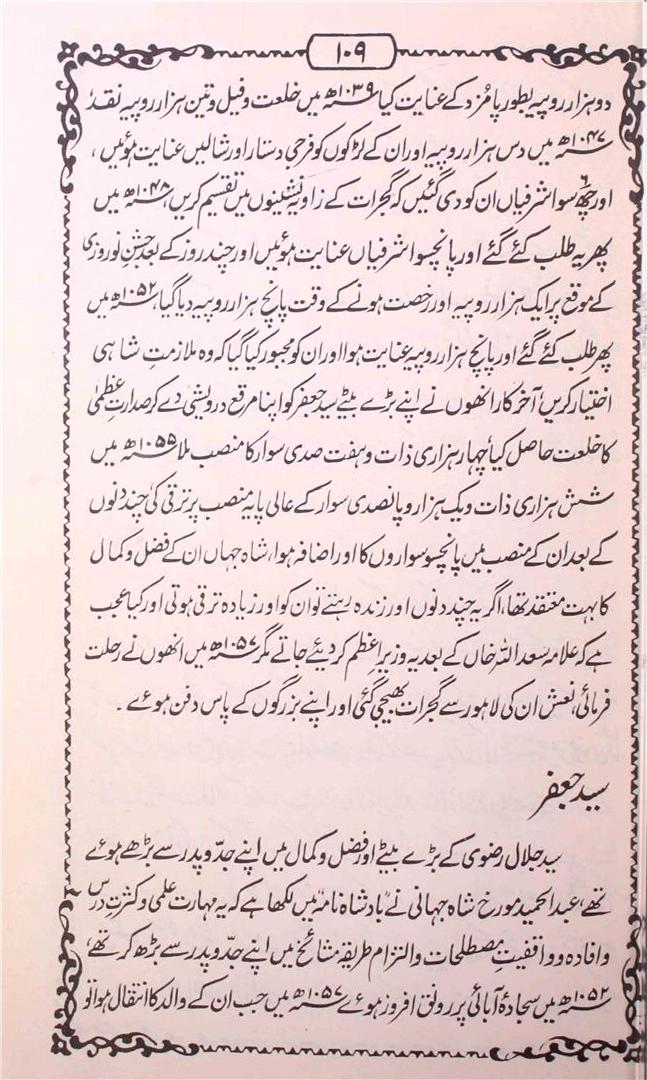 ۱۰۹
دو ہزار روپیہ بطور پامُزد کے عنایت کیا ۱۰۳۹ھ میں خلعت و فیل و تین ہزار روپیہ نقد
۱۰۴۷ھ میں دس ہزار روپیہ اور ان کے لڑکوں کو فرجی دستار اور شالیں عنایت ہوئیں،
اور چھ سو اشرفیاں ان کو دی گئیں کہ گجرات کے زاویہ نشینوں میں تقسیم کریں، ۱۰۴۸ھ میں
پھر یہ طلب کئے گئے اور پانچسو اشرفیاں عنایت ہوئیں اور چند روز کے بعد جشنِ نوروزی
کے موقع پر ایک ہزار روپیہ اور رخصت ہونے کے وقت پانچ ہزار روپیہ دیا گیا، ۱۰۵۲ھ میں
پھر طلب کئے گئے اور پانچ ہزار روپیہ عنایت ہوا اور ان کو مجبور کیا گیا کہ وہ ملازمتِ شاہی
اختیار کریں، آخر کار انھوں نے اپنے بڑے بیٹے سید جعفر کو اپنا مرقع درویشی دے کر صدارتِ عظمیٰ
کا خلعت حاصل کیا، چہار ہزاری ذات و ہفت صدی سوار کا منصب ملا ۱۰۵۵ھ میں
شش ہزاری ذات و یک ہزار و پانصدی سوار کے عالی پایہ منصب پر ترقی کی چند دنوں
کے بعد ان کے منصب میں پانچسو سواروں کا اور اضافہ ہوا، شاہ جہاں ان کے فضل و کمال
کا بہت معتقد تھا، اگر یہ چند دنوں اور زندہ رہتے تو ان کو اور زیادہ ترقی ہوتی اور کیا عجب
ہے کہ علامہ سعد اللہ خاں کے بعد یہ وزیرِ اعظم کر دیئے جاتے مگر ۱۰۵۷ھ میں انھوں نے رحلت
فرمائی، نعش ان کی لاہور سے گجرات بھیجی گئی اور اپنے بزرگوں کے پاس دفن ہوئے ۔
سید جعفر
سید جلال رضوی کے بڑے بیٹے اور فضل و کمال میں اپنے جد و پدر سے بڑھے ہوئے
تھے، عبدالحمید مورخ شاہ جہانی نے بادشاہ نامہ میں لکھا ہے کہ یہ مہارت علمی و کثرتِ درس
و افادہ و واقفیتِ مصطلحات و التزام طریقۂ مشائخ میں اپنے جد و پدر سے بڑھ کر تھے،
۱۰۵۲ھ میں سجادۂ آبائی پر رونق افروز ہوئے ۱۰۵۷ھ میں جب ان کے والد کا انتقال ہوا تو